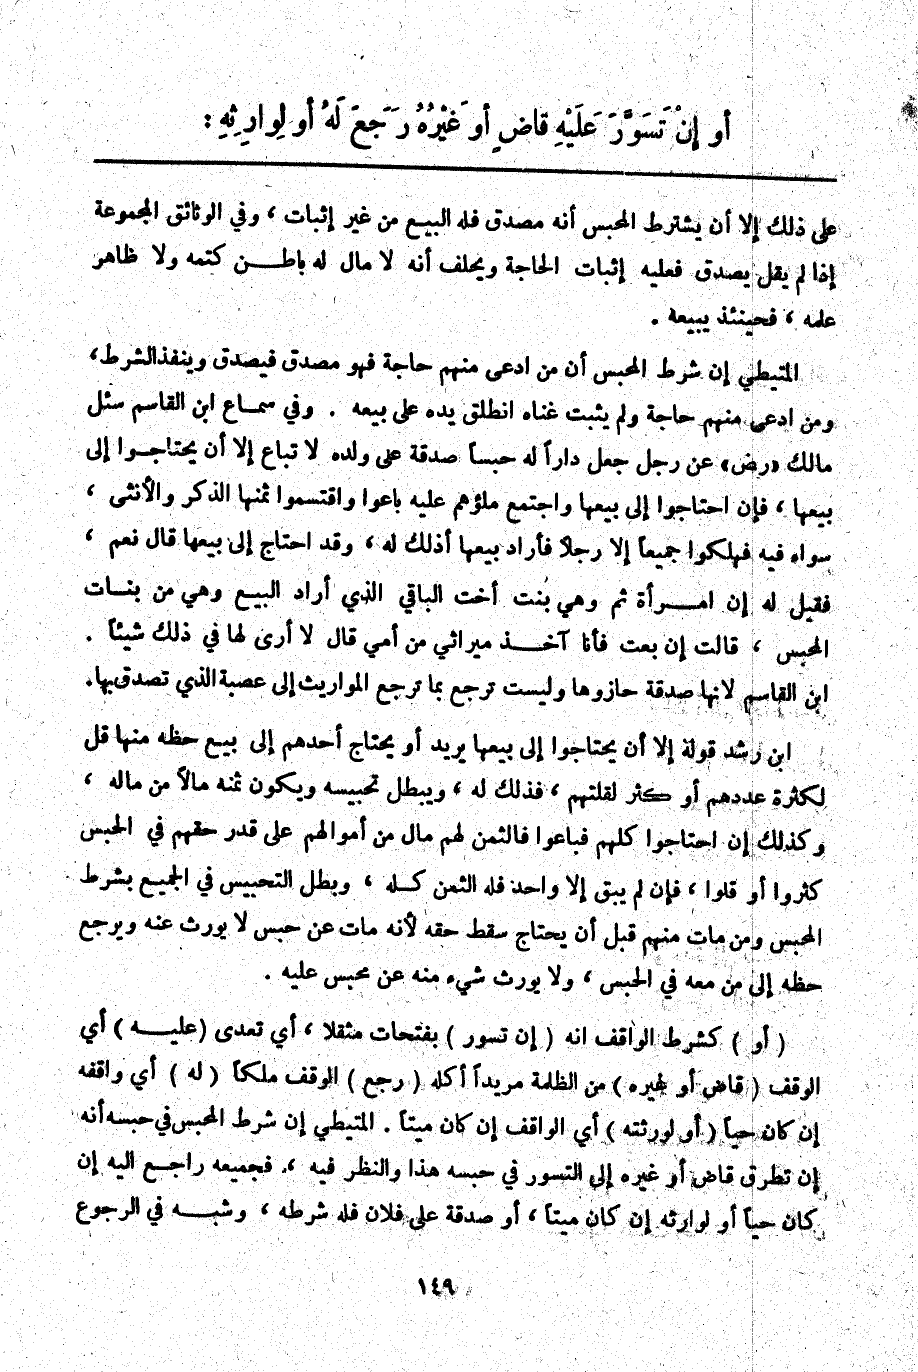 أو إِنْ تَسَوَّرَ عَلَيْهِ قاضٍ أو غَيْرُهُ رَجَعَ لَهُ أو لِوارِثِهِ :
على ذلك إلا أن يشترط المحبس أنه مصدق فله البيع من غير إثبات ، وفي الوثائق المجموعة
إذا لم يقل يصدق فعليه إثبات الحاجة ويحلف أنه لا مال له باطن كتمه ولا ظاهر
علمه ، فحينئذ يبيعه .
المتيطي إن شرط المحبس أن من ادعى منهم حاجة فهو مصدق فيصدق وينفذ الشرط ،
ومن ادعى منهم حاجة ولم يثبت غناه انطلق يده على بيعه . وفي سماع ابن القاسم سئل
مالك «رض» عن رجل جعل داراً له حبساً صدقة على ولده لا تباع إلا أن يحتاجوا إلى
بيعها ، فإن احتاجوا إلى بيعها واجتمع ملؤهم عليه باعوا واقتسموا ثمنها الذكر والأنثى ،
سواء فيه فهلكوا جميعاً إلا رجلاً فأراد بيعها أذلك له ، وقد احتاج إلى بيعها قال نعم ،
فقيل له إن امرأة ثم وهي بنت أخت الباقي الذي أراد البيع وهي من بنات
المحبس ، قالت إن بعت فأنا آخذ ميراثي من أمي قال لا أرى لها في ذلك شيئاً .
ابن القاسم لانها صدقة حازوها وليست ترجع بما ترجع المواريث إلى عصبة الذي تصدق بها.
ابن رشد قوله إلا أن يحتاجوا إلى بيعها يريد أو يحتاج أحدهم إلى بيع حظه منها قل
لكثرة عددهم أو كثر لقلتهم ، فذلك له ، ويبطل تحبيسه ويكون ثمنه مالاً من ماله ،
وكذلك إن احتاجوا كلهم فباعوا فالثمن لهم مال من أموالهم على قدر حقهم في الحبس
كثروا أو قلوا ، فإن لم يبق إلا واحد فله الثمن كله ، وبطل التحبيس في الجميع بشرط
المحبس ومن مات منهم قبل أن يحتاج سقط حقه لأنه مات عن حبس لا يورث عنه ويرجع
حظه إلى من معه في الحبس ، ولا يورث شيء منه عن محبس عليه .
( أو ) كشرط الواقف انه ( إن تسور ) بفتحات مثقلا ، أي تعدى (عليه ) أي
الوقف ( قاض أو غيره ) من الظلمة مريداً أكله ( رجع ) الوقف ملكاً ( له ) أي واقفه
إن كان حياً ( أو لورثته ) أي الواقف إن كان ميتاً . المتيطي إن شرط المحبس في حبسه أنه
إن تطرق قاض أو غيره إلى التسور في حبسه هذا والنظر فيه ، فجميعه راجع اليه إن
كان حياً أو لوارثه إن كان ميتاً ، أو صدقة على فلان فله شرطه ، وشبه في الرجوع
١٤٩